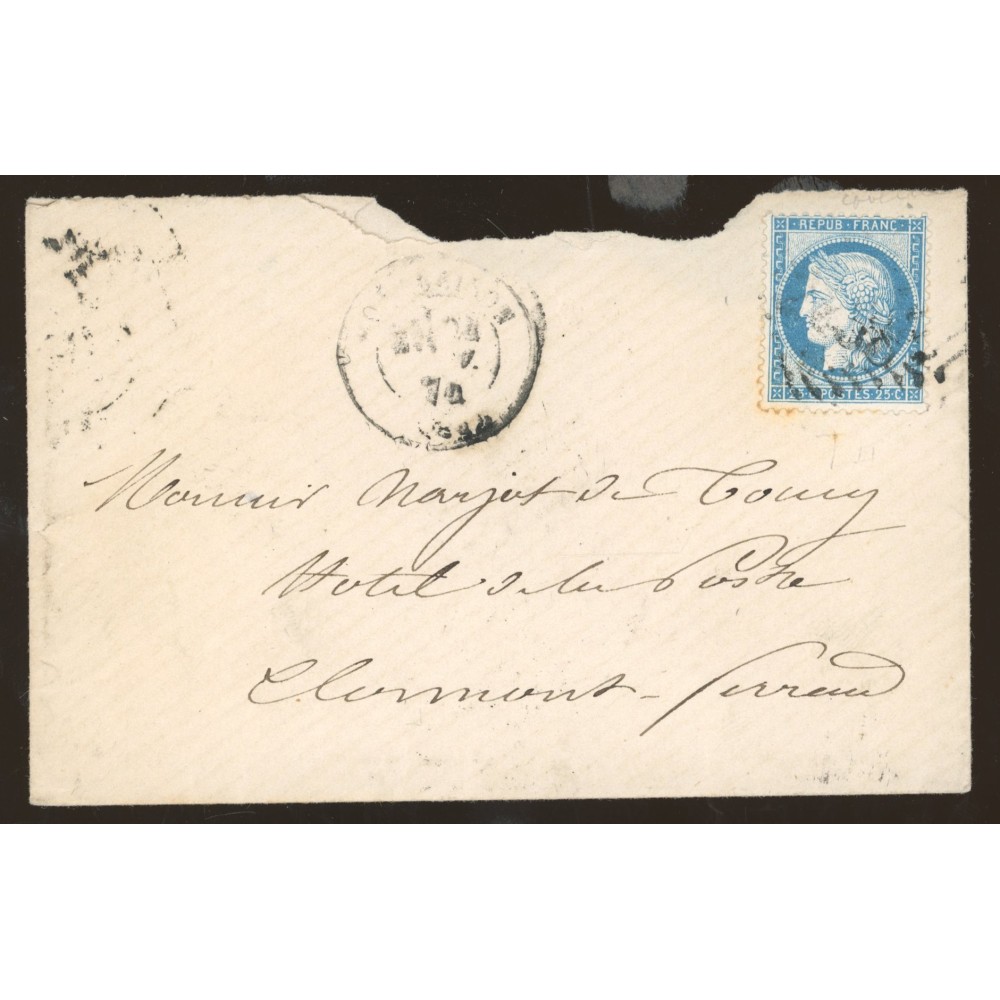 REPUB·FRANC·
POSTES 25·C·
74
Monsieur Marjot de Toucy
Hotel de la Poste
Clermont-Ferrand